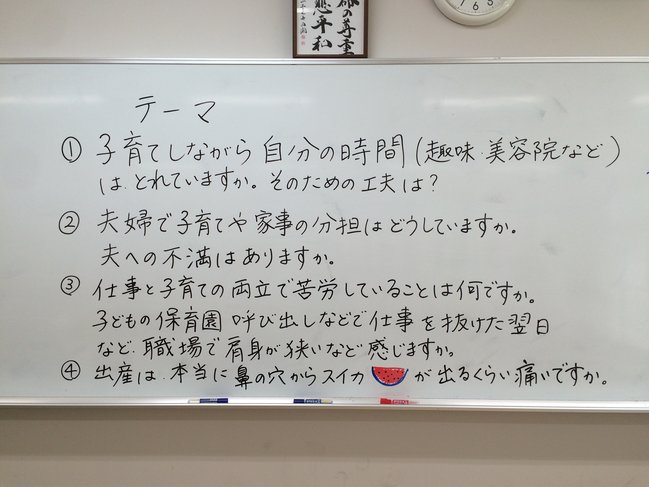 の尊重
平和
テーマ
① 子育てしながら自分の時間(趣味 美容院など)
は とれていますか。そのための工夫は?
② 夫婦で子育てや家事の分担はどうしていますか。
夫への不満はありますか。
③ 仕事と子育ての両立で苦労していることは何ですか。
子どもの保育園 呼び出しなどで仕事を抜けた翌日
など、職場で肩身が狭いなど感じますか。
④ 出産は、本当に鼻の穴からスイカ が出るくらい痛いですか。